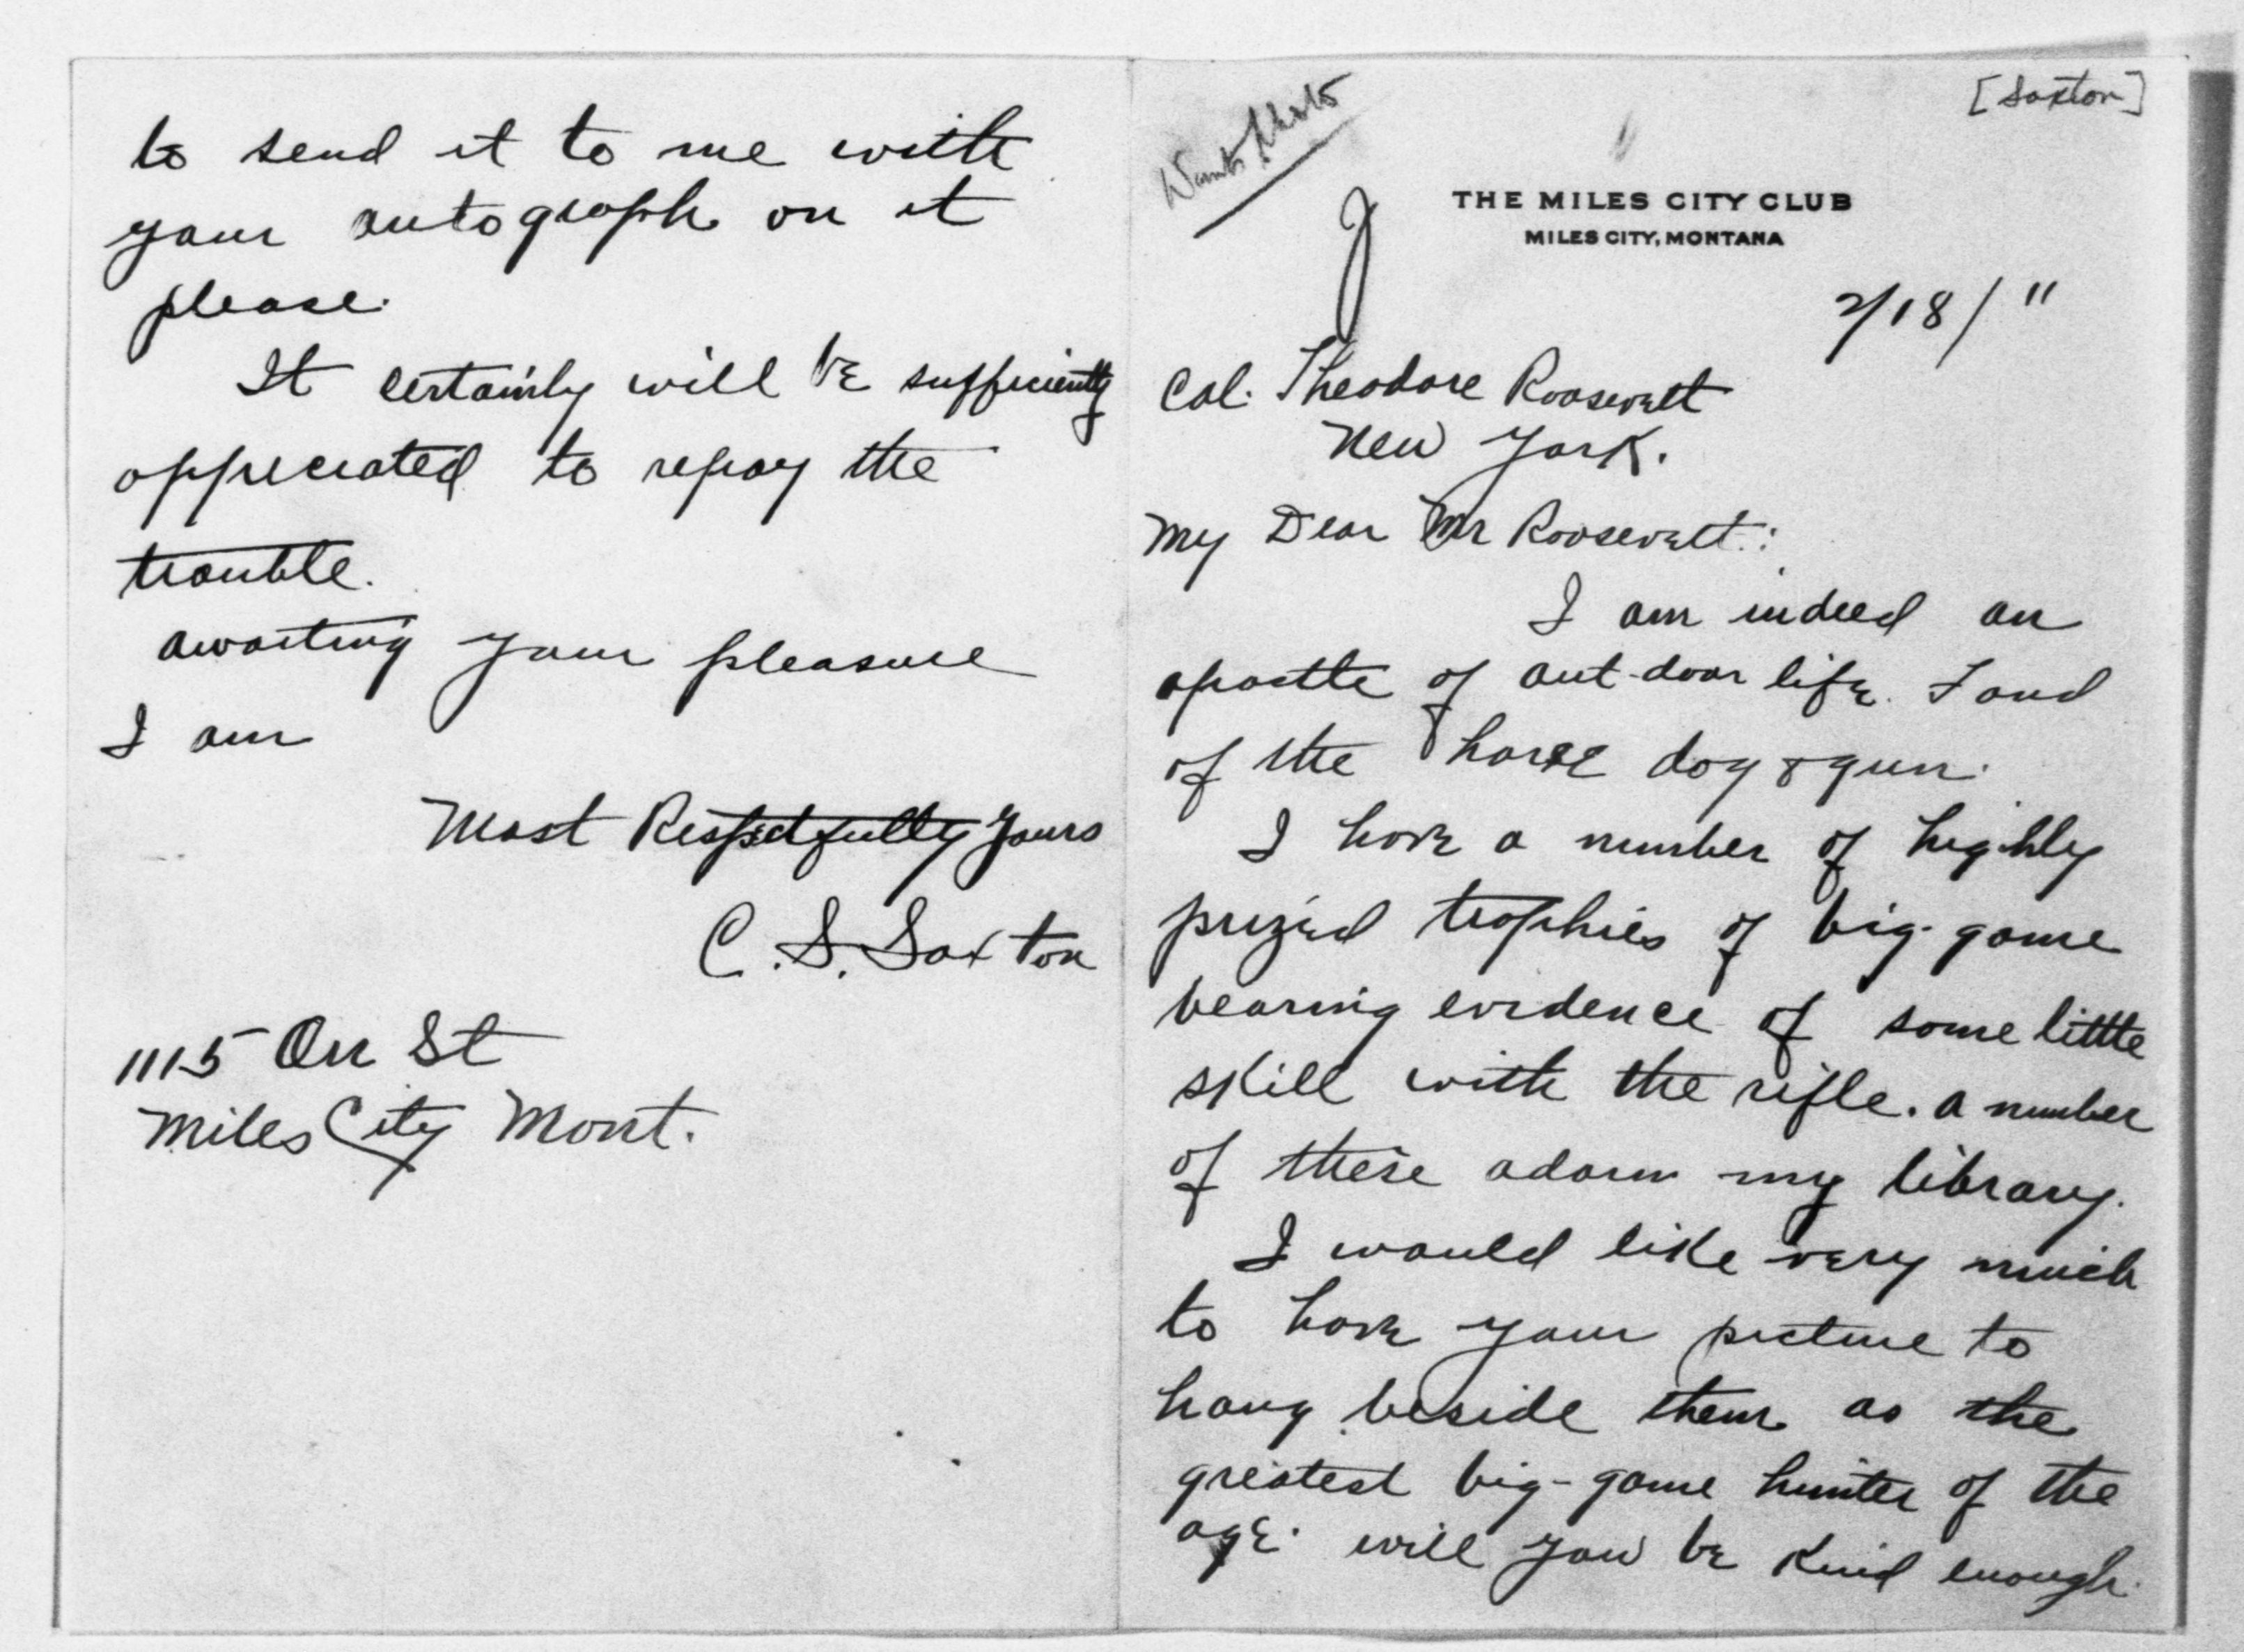 [Saxton]
Wants Photo
THE MILES CITY CLUB
MILES CITY, MONTANA
2/18/11
Col. Theodore Roosevelt
New York.
My Dear Mr Roosevelt:
I am indeed an
apostle of out-door life. Fond
of the horse dog & gun.
I have a number of highly
prized trophies of big-game
bearing evidence of some little
skill with the rifle. a number
of these adorn my library.
I would like very much
to have your picture to
hang beside them as the
greatest big-game hunter of the
age. will you be kind enough
to send it to me with
your autograph on it
please.
It certainly will be sufficiently
appreciated to repay the
trouble.
awaiting your pleasure
I am
Most Respectfully Yours
C. S. Saxton
1115 Orr St
Miles City Mont.